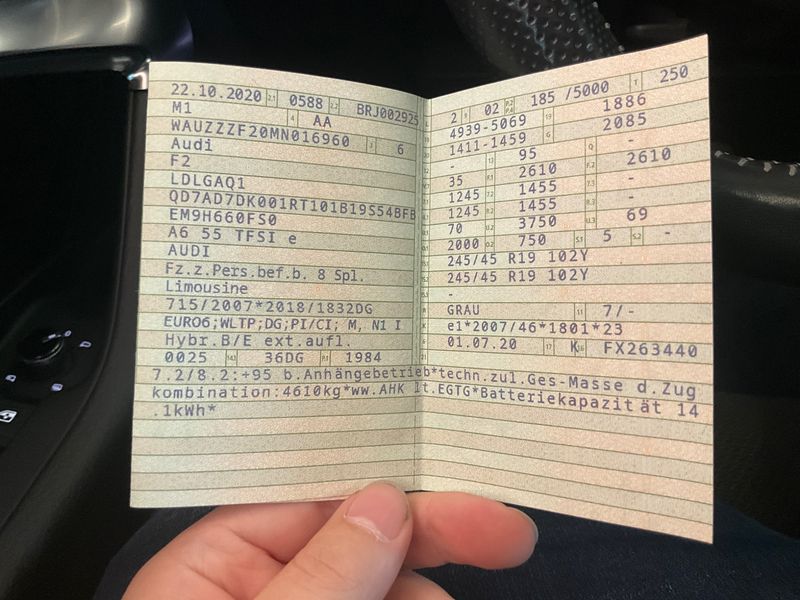 22.10.2020 2.1 0588 2.2 BRJ002925
M1 4 AA
WAUZZZF20MN016960 3 6
Audi
F2
LDLGAQ1
QD7AD7DK001RT101B19S54BFB
EM9H660FS0
A6 55 TFSI e
AUDI
Fz.z.Pers.bef.b. 8 Spl.
Limousine
715/2007*2018/1832DG
EURO6;WLTP;DG;PI/CI; M, N1 I
Hybr.B/E ext.aufl.
0025 14.1 36DG P.1 1984
2 9 02 P.2 P.4 185 /5000 T 250
4939-5069 19 1886
1411-1459 G 2085
- 13 95 Q -
35 F.1 2610 F.2 2610
1245 7.2 1455 7.3 -
1245 8.2 1455 8.3 -
70 U.2 3750 U.3 69
2000 O.2 750 S.1 5 S.2 -
245/45 R19 102Y
245/45 R19 102Y
-
R GRAU 11 7/-
K e1*2007/46*1801*23
6 01.07.20 17 K 16 FX263440
21
7.2/8.2:+95 b.Anhängebetrieb*techn.zul.Ges-Masse d.Zug
kombination:4610kg*ww.AHK lt.EGTG*Batteriekapazität 14
.1kWh*